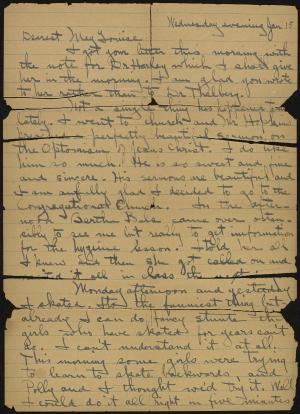 Wednesday evening Jan 15
Dearest Meg Louise
I got your letter this morning with
the note for Dr. Harley which I shall give
her in the morning. I am glad you wrote
to her rather than to
Not a single thing has happened
lately. I went to church and Mr. Hopkins
a perfectly beautiful sermon on
the Optimism of Jesus Christ. I do like
him so much. He is so sweet and fine
and sincere. His sermons are beautiful and
I am awfully glad I decided to go to the
Congregational Church. In the after-
noon Bertha came over osten-
sibly to see me but really to get information
for the hygiene lesson. I told her all
I knew and then she got called on and
it all in class
Monday afternoon and yesterday
I skated. It's the funniest thing but
already I can do fancy stunts the
girls who have skated for years can't
do. I can't understand it at all.
This morning some girls were trying
to learn to skate backwards, and
Polly and I thought we'd try it. Well
I could do it all right in five minutes